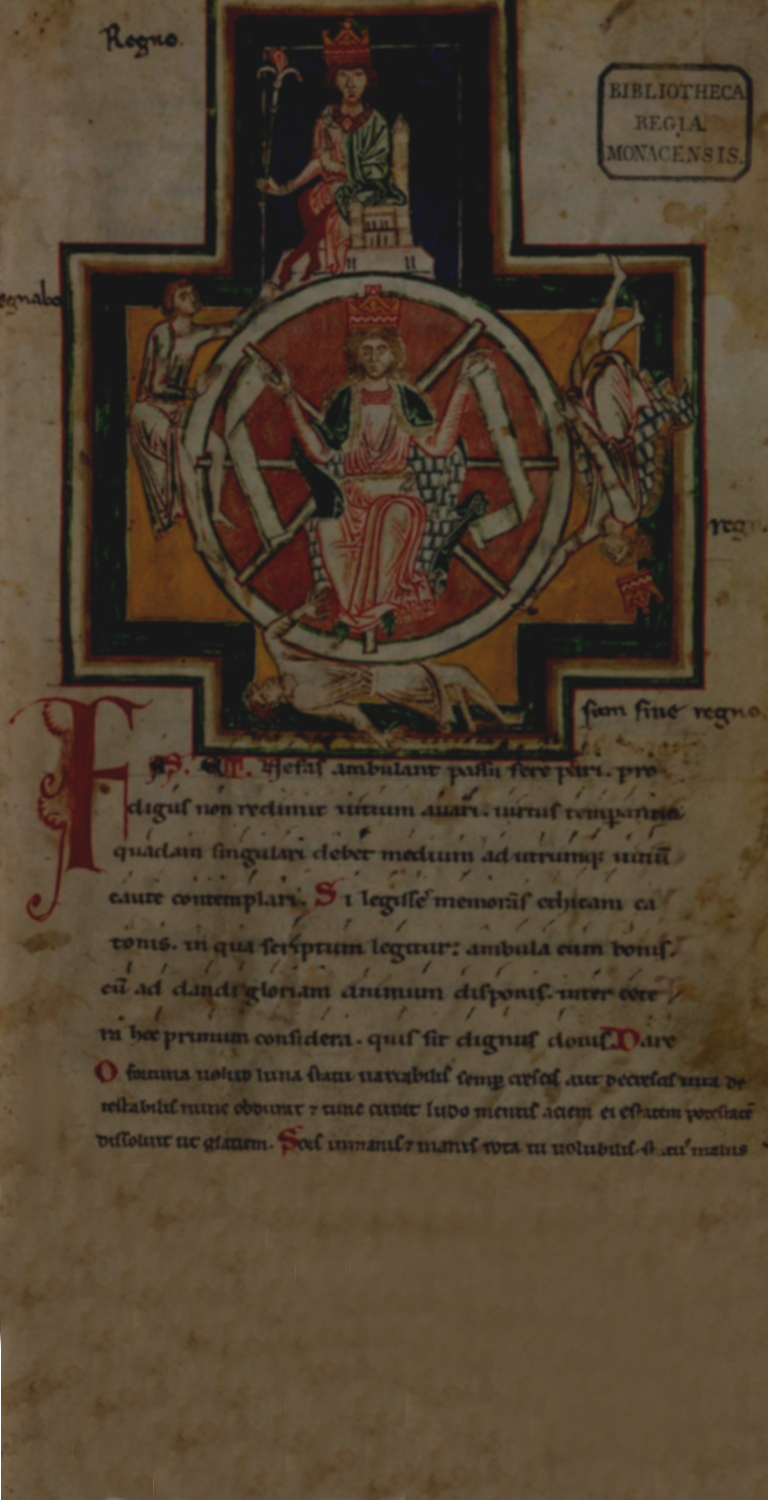 Regno
BIBLIOTHECA
REGIA
MONACENSIS.
egnabo
regn
sum sine regno
FAS ET Nefas ambulant passu fere pari. pro
digus non redimit uitium auari. uirtus temperantia
quadam singulari debet medium ad utrumque uitiū
caute contemplari. Si legisse memoras ethicam ca
tonis. in qua scriptum legitur: ambula cum bonis.
cū ad dandi gloriam animum disponis. inter cete
ra hoc primum considera. quis sit dignus donis. Dare
O fortuna uelud luna statu uariabilis semp crescis aut decrescis uita de
testabilis nunc obdurat ⁊ tunc curat ludo mentis aciem egestatem potestatē
dissoluit ut glaciem. Sors immanis ⁊ inanis rota tu uolubilis status malus